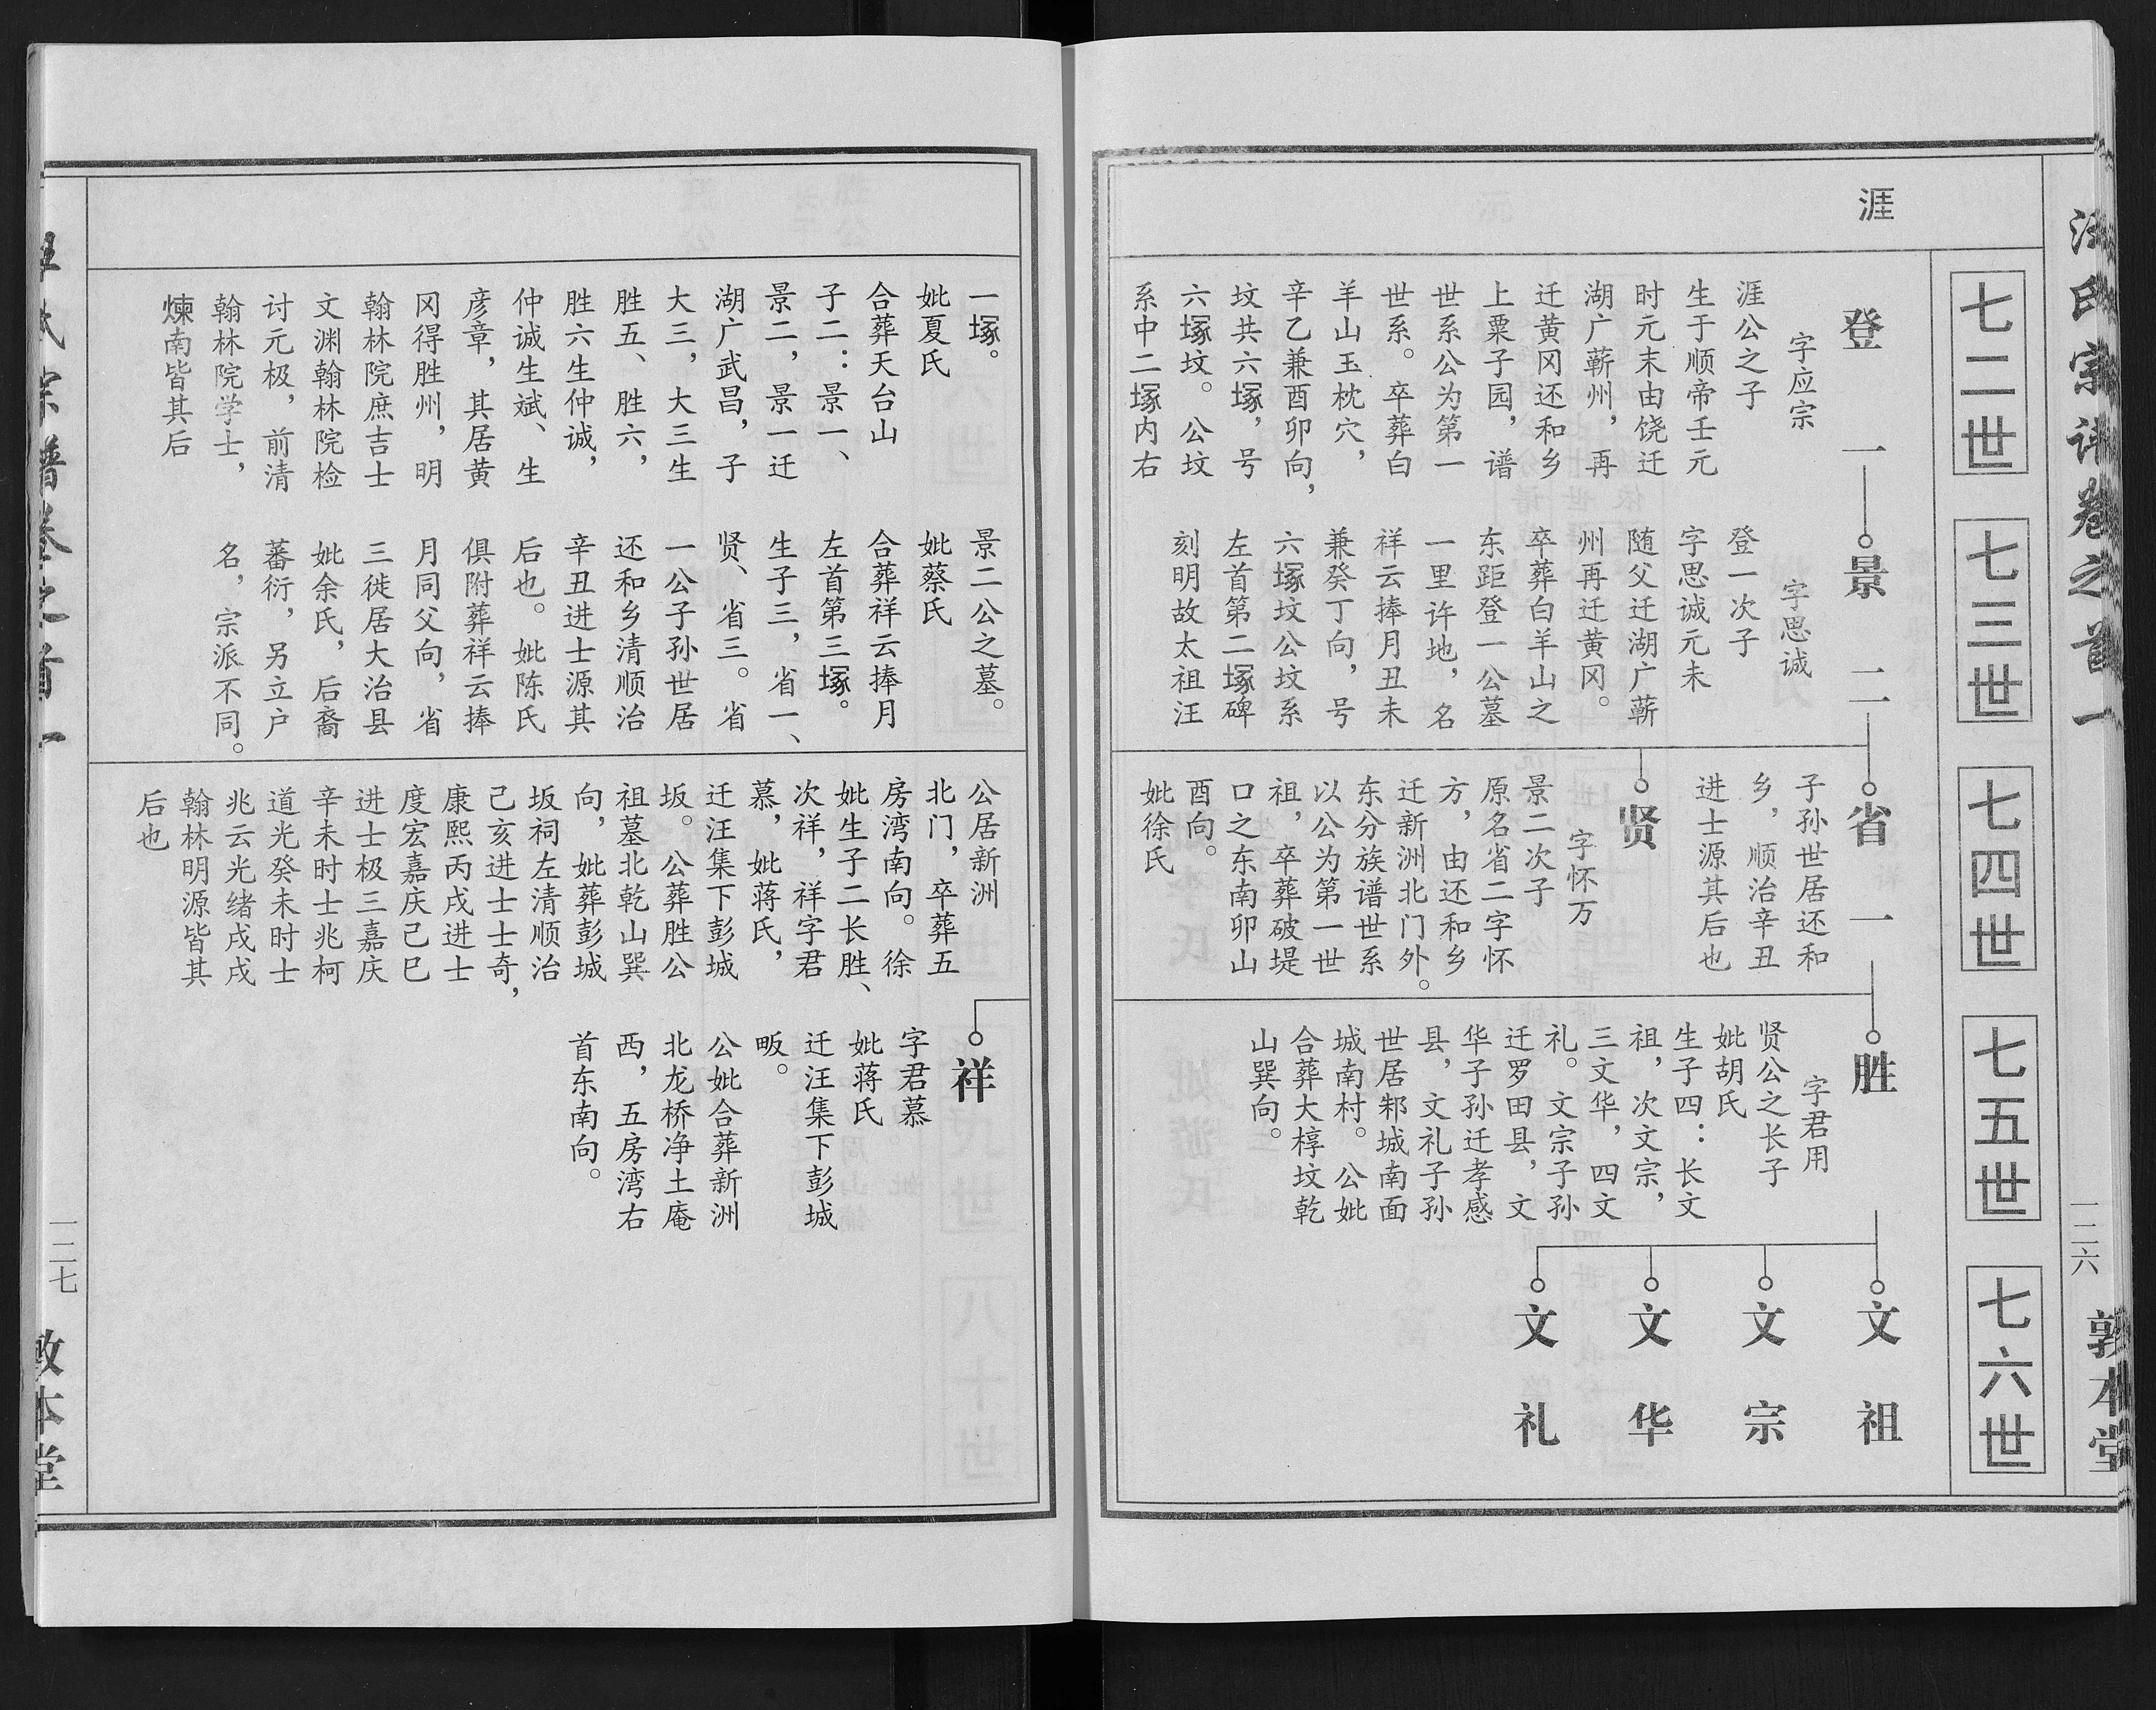 汪氏宗谱卷之首一
一二六
敦本堂
七二世
七三世
七四世
七五世
七六世
涯
登一
字应宗
涯公之子
生于顺帝壬元
时元末由饶迁
湖广蕲州，再
迁黄冈还和乡
上粟子园，谱
世系公为第一
世系。卒葬白
羊山玉枕穴，
辛乙兼酉卯向，
坟共六塚，号
六塚坟。公坟
系中二塚内右
景二
字思诚
登一次子
字思诚元末
随父迁湖广蕲
州再迁黄冈。
卒葬白羊山之
东距登一公墓
一里许地，名
祥云捧月丑未
兼癸丁向，号
六塚坟公坟系
左首第二塚碑
刻明故太祖汪
省一
子孙世居还和
乡，顺治辛丑
进士源其后也
贤
字怀万
景二次子
原名省二字怀
方，由还和乡
迁新洲北门外。
东分族谱世系
以公为第一世
祖，卒葬破堤
口之东南卯山
酉向。
妣徐氏
胜
字君用
贤公之长子
妣胡氏
生子四：长文
祖，次文宗，
三文华，四文
礼。文宗子孙
迁罗田县，文
华子孙迁孝感
县，文礼子孙
世居邾城南面
城南村。公妣
合葬大椁坟乾
山巽向。
文祖
文宗
文华
文礼
一塚。
妣夏氏
合葬天台山
子二：景一、
景二，景一迁
湖广武昌，子
大三，大三生
胜五、胜六，
胜六生仲诚，
仲诚生斌、生
彦章，其居黄
冈得胜州，明
翰林院庶吉士
文渊翰林院检
讨元极，前清
翰林院学士，
煉南皆其后
景二公之墓。
妣蔡氏
合葬祥云捧月
左首第三塚。
生子三，省一、
贤、省三。省
一公子孙世居
还和乡清顺治
辛丑进士源其
后也。妣陈氏
俱附葬祥云捧
月同父向，省
三徙居大冶县
妣余氏，后裔
蕃衍，另立户
名，宗派不同。
公居新洲
北门，卒葬五
房湾南向。徐
妣生子二长胜、
次祥，祥字君
慕，妣蒋氏，
迁汪集下彭城
坂。公葬胜公
祖墓北乾山巽
向，妣葬彭城
坂祠左清顺治
己亥进士士奇，
康熙丙戌进士
度宏嘉庆己巳
进士极三嘉庆
辛未时士兆柯
道光癸未时士
兆云光绪戌戌
翰林明源皆其
后也
祥
字君慕
妣蒋氏
迁汪集下彭城
畈。
公妣合葬新洲
北龙桥净土庵
西，五房湾右
首东南向。
氏宗谱卷之首一
一二七
敦本堂